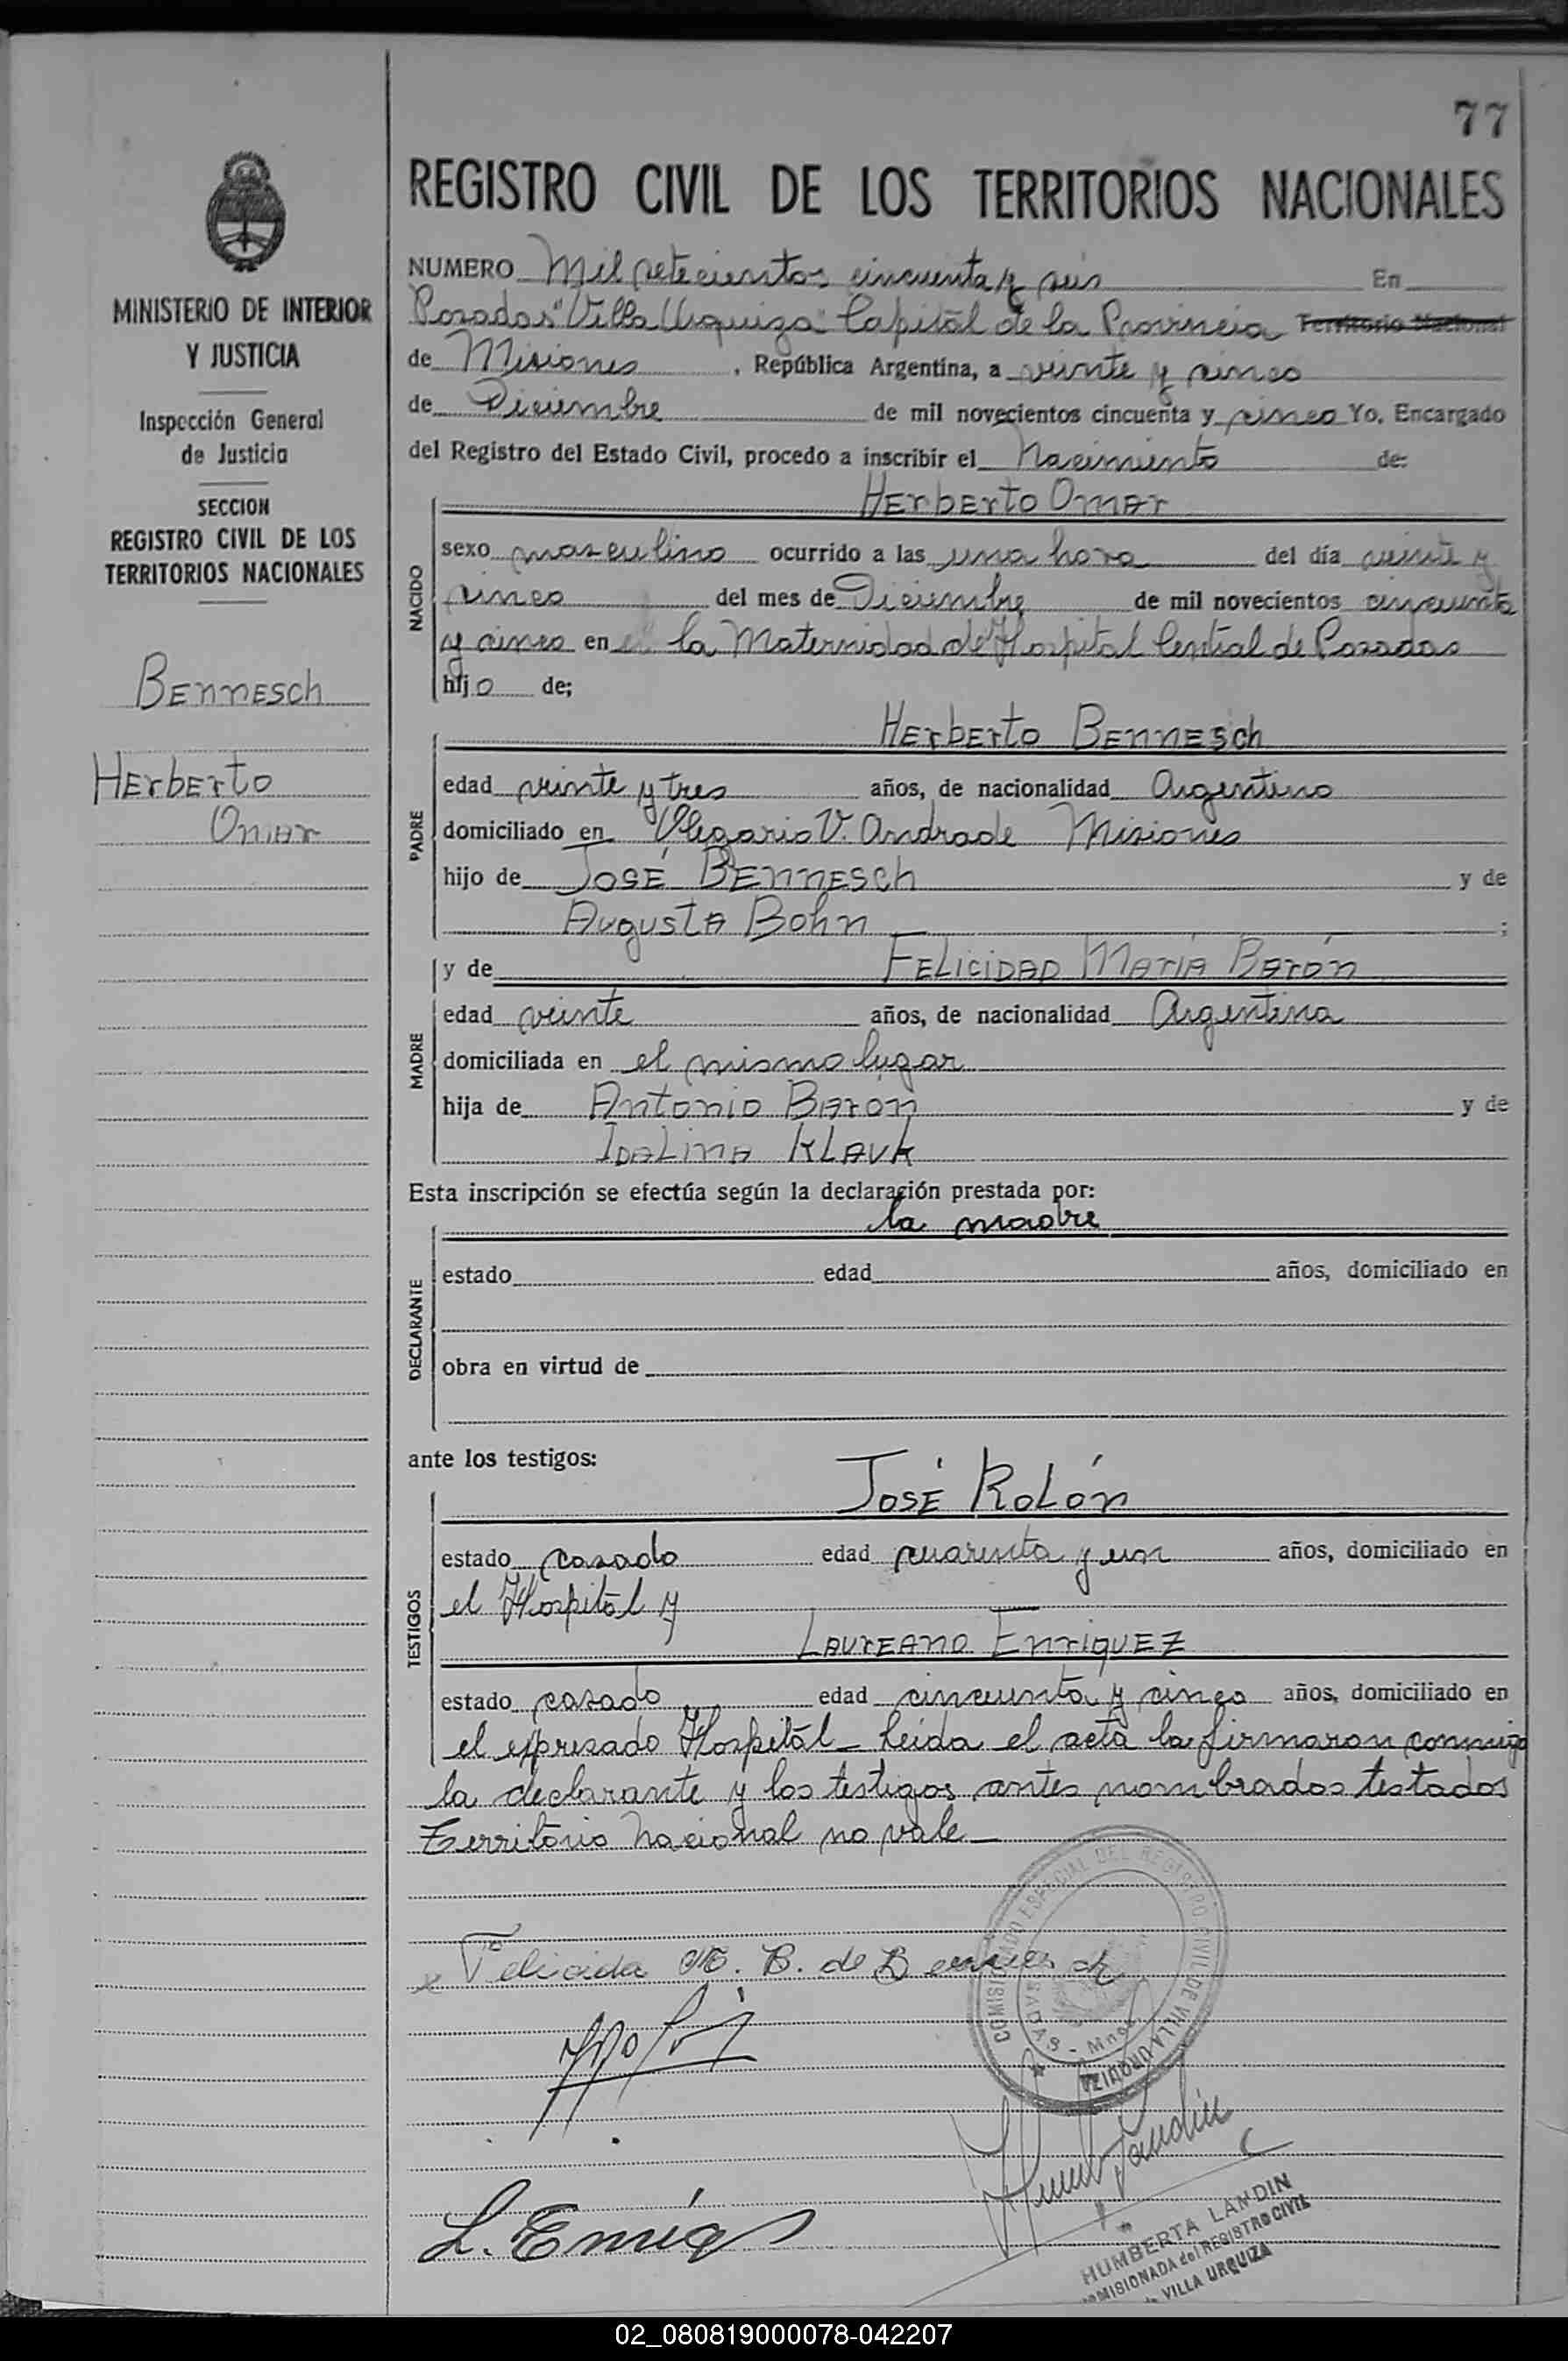 77
REGISTRO CIVIL DE LOS TERRITORIOS NACIONALES
MINISTERIO DE INTERIOR
Y JUSTICIA
Inspección General
de Justicia
SECCION
REGISTRO CIVIL DE LOS
TERRITORIOS NACIONALES
Bennesch
Herberto
Omar
NUMERO Mil setecientos cincuenta y seis En
Posadas "Villa Urquiza" Capital de la Provincia Territorio Nacional
de Misiones, República Argentina, a veinte y cinco
de Diciembre de mil novecientos cincuenta y cinco Yo, Encargado
del Registro del Estado Civil, procedo a inscribir el Nacimiento de:
Herberto Omar
NACIDO
sexo masculino ocurrido a las una hora del día veinte y
cinco del mes de Diciembre de mil novecientos cincuenta
y cinco en la Maternidad del Hospital Central de Posadas
hijo de;
Herberto Bennesch
PADRE
edad veinte y tres años, de nacionalidad Argentino
domiciliado en Olegario V. Andrade Misiones
hijo de José Bennesch y de
Augusta Bohn ;
y de Felicidad María Barón
MADRE
edad veinte años, de nacionalidad Argentina
domiciliada en el mismo lugar
hija de Antonio Barón y de
Idalina Klauk
Esta inscripción se efectúa según la declaración prestada por:
la madre
DECLARANTE
estado edad años, domiciliado en
obra en virtud de
ante los testigos:
José Rolón
TESTIGOS
estado casado edad cuarenta y un años, domiciliado en
el Hospital y
Laureano Enriquez
estado casado edad cincuenta y cinco años, domiciliado en
el expresado Hospital_ Leída el acta la firmaron conmigo
la declarante y los testigos antes nombrados testados
Territorio Nacional no vale_
Felicida M. B. de Bennesch
COMISIONADO ESPECIAL DEL REGISTRO CIVIL DE VILLA URQUIZA
SADAS - Mnes.
L. Enriq
HUMBERTA LANDIN
OMISIONADA del REGISTRO CIVIL
VILLA URQUIZA
02_080819000078-042207